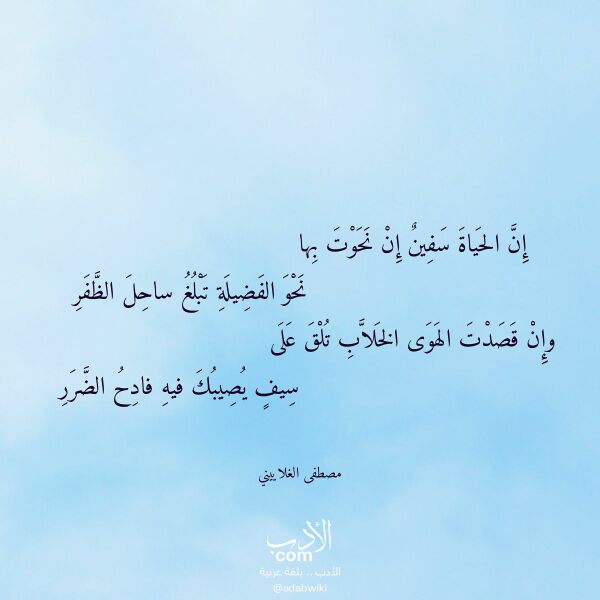 إِنَّ الحَياةَ سَفِينٌ إِنْ نَحَوْتَ بِها
نَحْوَ الفَضِيلَةِ تَبْلُغُ ساحِلَ الظَّفَرِ
وإِنْ قَصَدْتَ الهَوَى الخَلاَّبِ تُلْقَ عَلَى
سِيفٍ يُصِيبُكَ فيهِ فادِحُ الضَّرَرِ
مصطفى الغلاييني
الأدب
com
الأدب .. بلغة عربية
@adabwiki